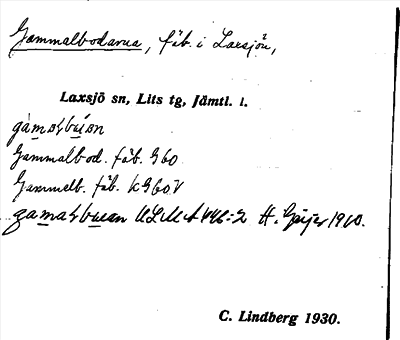 Gammalbodarna, fäb. i Laxsjön,
Laxsjö sn, Lits tg, Jämtl. l.
Gammalbod. fäb. G60
Gammelb. fäb. KG60V
ULMA 446:2 H. Geijer 1910.
C. Lindberg 1930.